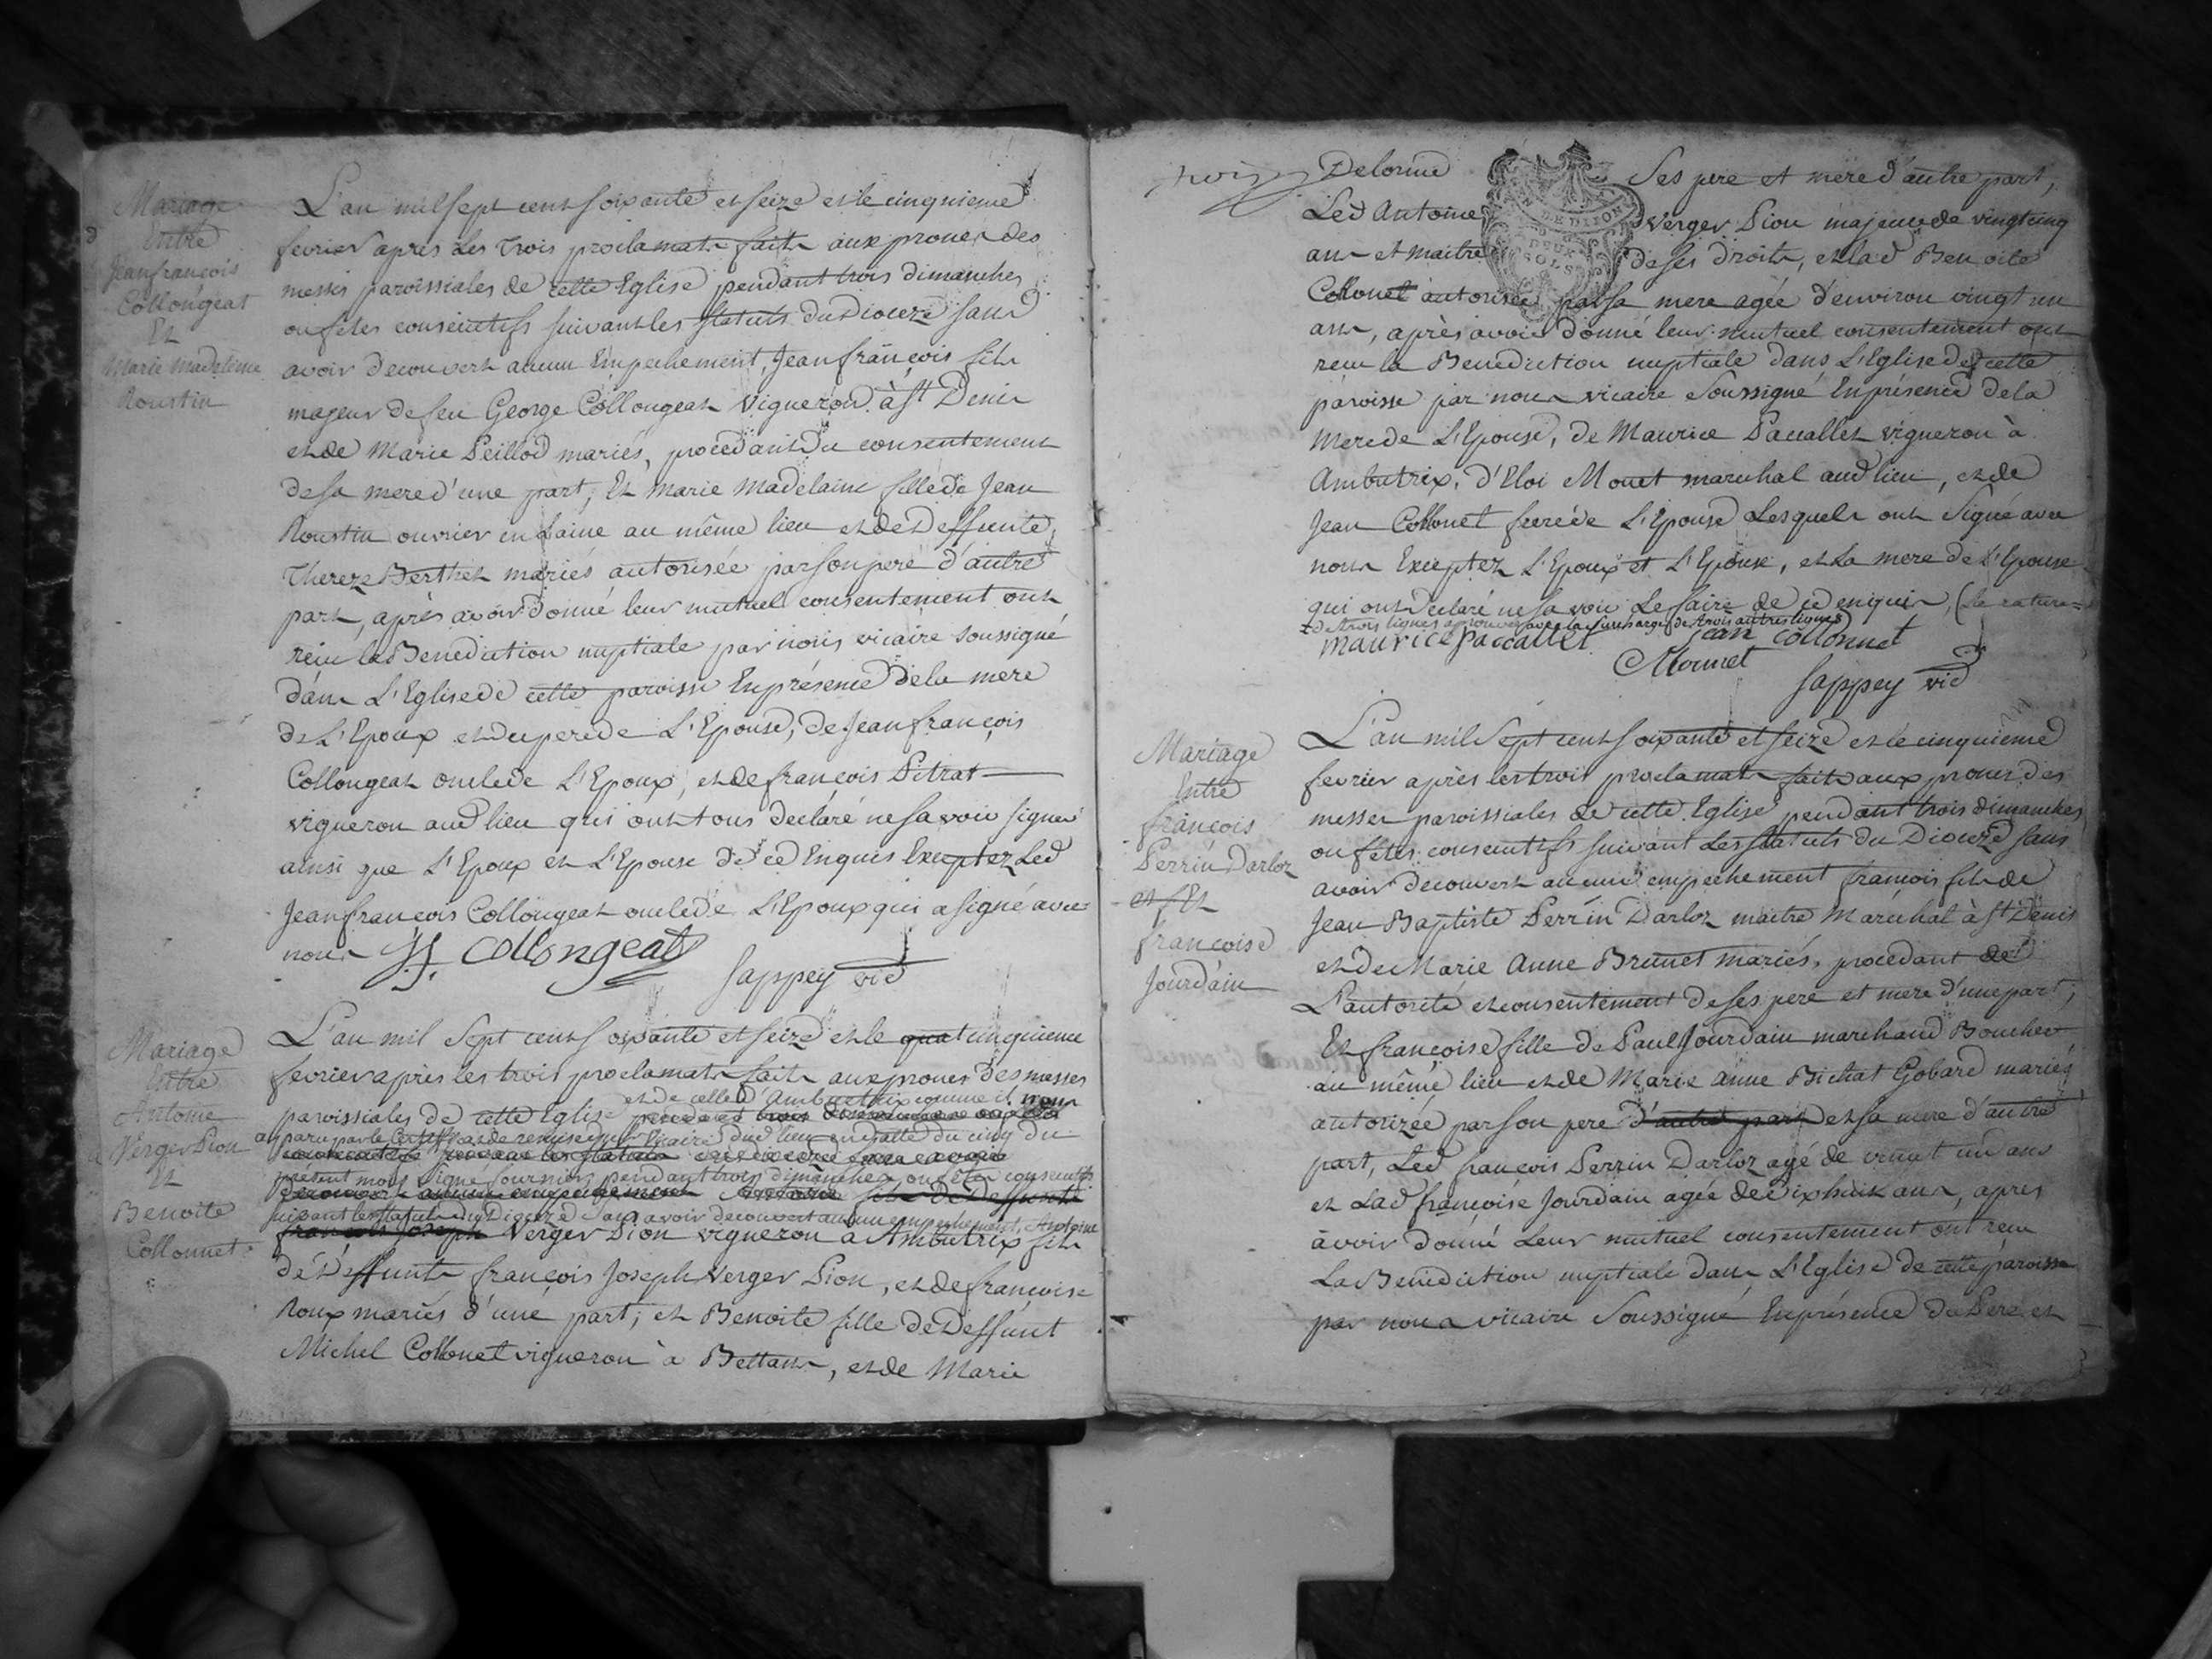 Mariage
Entre
Jean françois
Collongeat
Et
Marie Madeleine
Roustin
L'an mil sept cent soixante et seize et le cinquieme
fevrier après les trois proclamat.s faits aux prones des
messes paroissiales de cette Eglise pendant trois dimanches
ou fêtes consécutifs suivant les statuts du Dioceze sans
avoir decouvert aucun Empechement, Jean françois fils
majeur de feu George Collongeat vigneron à St Denis
et de Marie Peillod mariés, procedant du consentement
de sa mere d'une part; Et Marie Madelaine fille de Jean
Roustin ouvrier en Laine au même lieu et de Deffunte
Thereze Berthet mariés autorisée par son pere d'autre
part, après avoir donné leur mutuel consentement ont
reçu la Benediction nuptiale par nous vicaire soussigné
dans L'Eglise de cette paroisse En présence de la mere
de L'Epoux et du pere de L'Epouse, de Jean françois
Collongeat oncle de L'Epoux, et de françois Pitrat
vigneron aud lieu qui ont tous declaré ne savoir signer
ainsi que L'Epoux et L'Epouse de ce Enquis Exceptez Led
Jean françois Collongeat oncle de L'Epoux qui a signé avec
nous J f. Collongeat
Sappey vic
Mariage
Entre
Antoine
Verger Pion
Et
Benoite
Collonnet
L'an mil Sept cent soixante et seize et le quat cinquieme
fevrier après les trois proclamat.s faits aux prones des messes
et de celle d'Ambutrix comme il nous
paroissiales de cette Eglise pendant trois dimanches ou fêtes
a paru par le Certificat de remise du vicaire dud lieu en datte du cinq du
consecutifs suivant les statuts du Diocèze sans avoir
présent mois signé fournier pendant trois dimanches ou fêtes consecutifs
decouvert aucun empechement Antoine fils de Deffunts
suivant les statuts du Diocèze sans avoir decouvert aucun empechement, Antoine
françois Joseph Verger Pion vigneron à Ambutrix fils
de Deffunts françois Joseph Verger Pion, et de françoise
Roux mariés d'une part; et Benoite fille de Deffunt
Michel Collonet vigneron à Bettans, et de Marie
Delorme Ses pere et mere d'autre part,
Led Antoine Verger Pion majeur de vingt cinq
ans et maitre de ses droits, et lad Benoite
Collonet autorisée par sa mere agée d'environ vingt un
ans, après avoir donné leur mutuel consentement ont
reçu la Benediction nuptiale dans L'Eglise de cette
paroisse par nous vicaire Soussigné En présence de la
mere de L'Epouse, de Maurice Paccallet vigneron à
Ambutrix, d'Eloi Monet marechal aud lieu, et de
Jean Collonet frere de L'Epouse Lesquels ont Signé avec
nous Exceptez L'Epoux et L'Epouse, et La mere de L'Epouse
qui ont declaré ne savoir Le faire de ce enquis, (la rature
de trois lignes aprouvée avec la surcharge de trois autres lignes)
maurice paccallet jean collonnet
Mounet
Sappey vic
Mariage
Entre
françois
Perrin Darloz
et Et
françoise
Jourdain
L'an mil Sept cent soixante et seize et le cinquieme
fevrier après les trois proclamat.s faits aux prones des
messes paroissiales de cette Eglise pendant trois dimanches
ou fêtes consecutifs suivant Les statuts du Diocèze sans
avoir decouvert aucun empechement françois fils de
Jean Baptiste Perrin Darloz maitre Maréchal à St Denis
et de Marie Anne Brunet mariés, procedant de
L'autorité et consentement de ses pere et mere d'une part;
Et françoise fille de Paul Jourdain marchand Boucher
au même lieu et de Marie Anne Bichat Gobard mariés
autorizée par son pere d'autre part et sa mere d'autre
part, Led françois Perrin Darloz agé de vingt un ans
et Lad françoise Jourdain agée de dix huit ans, après
avoir donné Leur mutuel consentement ont reçu
La Benediction nuptiale dans L'Eglise de cette paroisse
par nous vicaire Soussigné En présence du Pere et